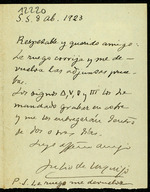 12220
S.S. 8 Ab. 1923
Respetable y querido amigo:
Le ruego corrija y me de-
vuelva las adjuntas prue-
bas.
Los signos D, V, 8 y III los he
mandado grabar en
y me los entregarán dentro
de dos o tres días.
Suyo affmo amigo
Julio de Urquijo
P.S. Le ruego me devuelva